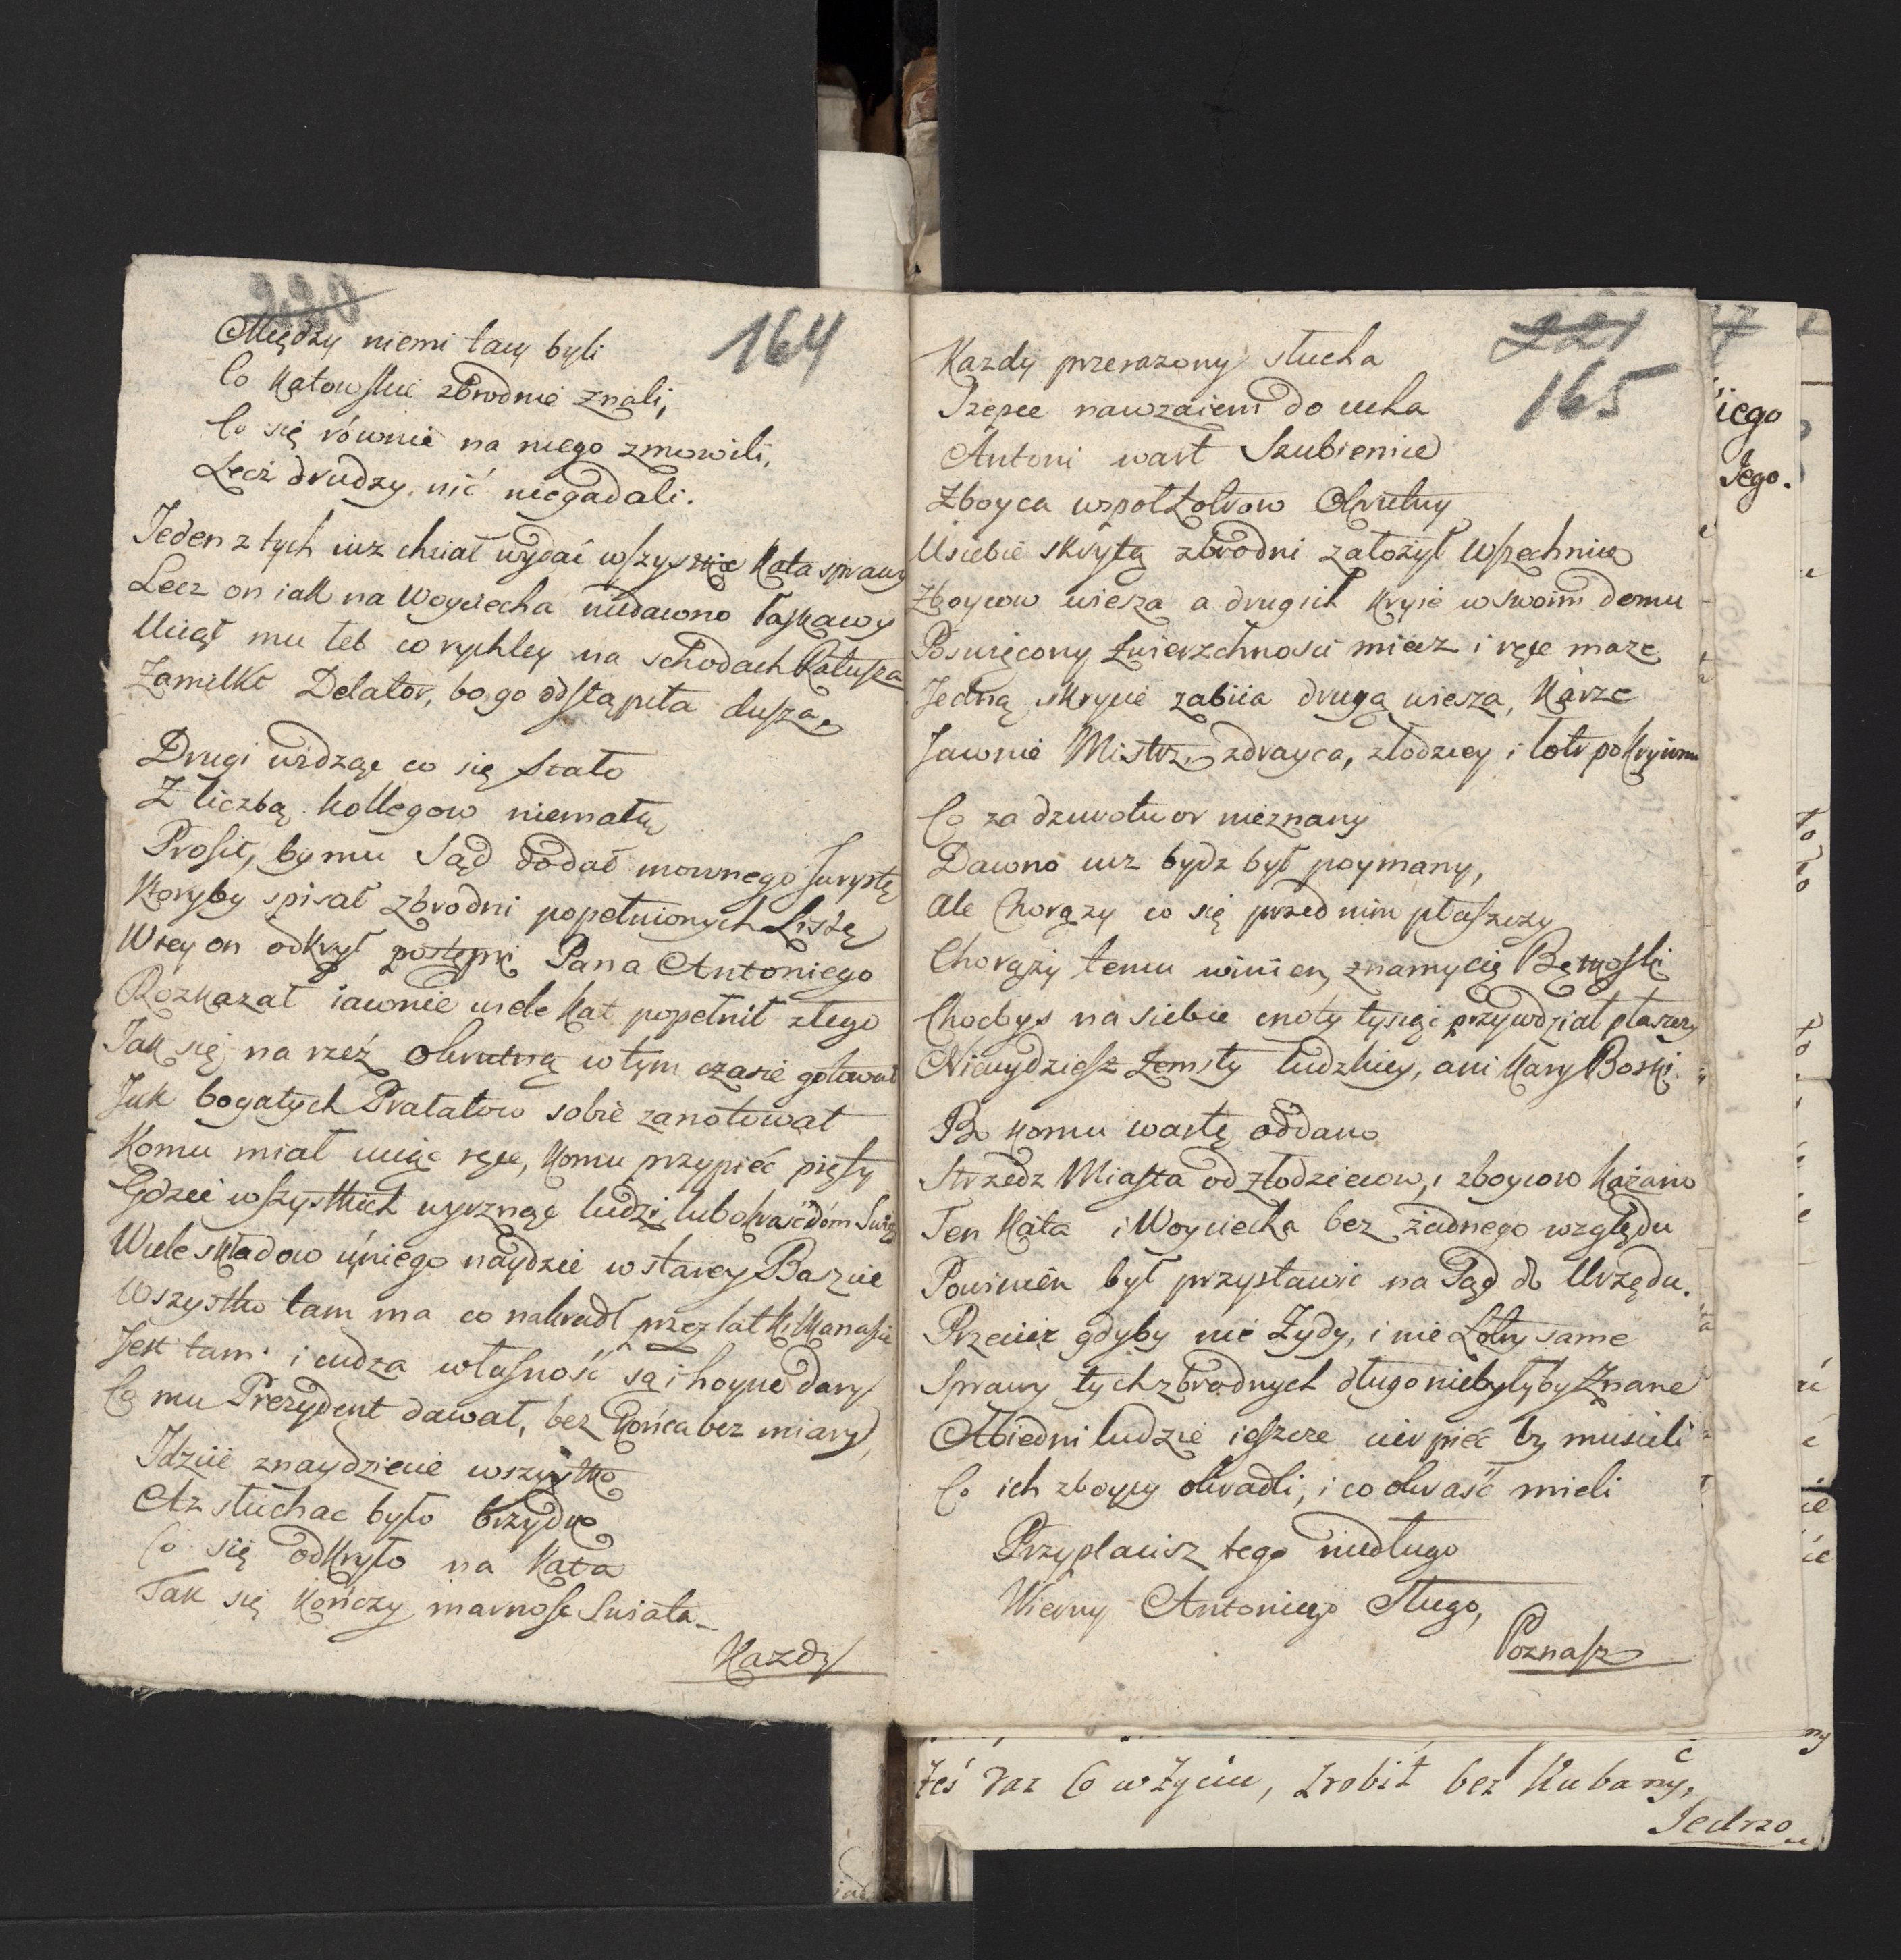 220
164
Między niemi tacy byli
Co Katowskie zbrodnie znali,
Co się równie na niego zmowili,
Lecz drudzy nić niegadali.
Jeden z tych iuz chciał wydać wszyskie Kata sprawy
Lecz on iak na Woyciecha niedawno łaskawy
Uciął mu łeb co rychley na schodach Ratusza
Zamilkł Delator, bo go odstąpiła dusza.
Drugi widząc co się stało
Z liczbą kollegow niemałą
Prosił, by mu Sąd dodał mownego Jurystę
Ktoryby spisał zbrodni popełnionych Listę
Wtey on odkrył postępki Pana Antoniego
Rozkazał iawnie wiele Kat popełnił złego
Jak się na rzeź okrutną w tym czasie gotował
Jak bogatych Prałatow sobie zanotował
Komu miał uciąć ręce, Komu przypieć pięty
Gdzie wszystkich wyrznąć ludzi, lub okraść dóm
Wiele składow úniego náydzie w starey Baszcie
Wszystko tam ma co nakradł przez lat Kilkanascie
Jest tam i cudza własność są i hoyne dary
Co mu Prezydent dawał, bez Końca bez miary,
Idzcie znaydziecie wszystko
Az słuchac było brzydko
Co się odkryło na Kata
Tak się Kończy marnosc Swiata
Kazdy
221
165
Kazdy przerazony słucha
Szepce nawzaiem do ucha
Antoni wart Szubienice
Zboyca wspołłotrow Okrutny
Usiebie skrytą zbrodni założył Wszechnicę
Zboycow wiesza a drugich Kryie w swoim domu
Poswięcony Zwierzchnosci miecz i ręce maze
Jedną skrycie zabiia drugą wiesza, Karze
Jawnie Mistrz, zdrayca, złodziey i łotr pokryiomu
Co za dziwotwor nieznany
Dawno iuz bydz był poymany,
Ale Chorązy co się przed nim płaszczy
Chorąży temu winien, znamy cię
Chocbys na siebie cnoty tysiąc przywdział płaszczy
Nieuydziesz Zemsty ludzkiey, ani Kary Boski.
Bo komu wartę oddano
Strzedz Miasta od złodzieiow, i zboycow Kazano
Ten Kata i Woyciecha bez żadnego względu
Powinien był przystawic na Sąd do Urzędu.
Przeciez gdyby nie Zydy, i nie Łotry same
Sprawy tych zbrodnych długo niebyłyby Znane
A biedni ludzie ieszcze cierpieć by musieli
Co ich zboycy okradli, i co okraść mieli
Przypłacisz tego niedługo
Wierny Antoniego Sługo,
Poznasz
iego
Jego.
żeś raz Co w Życiu, zrobił bez Kubany,
Jedno